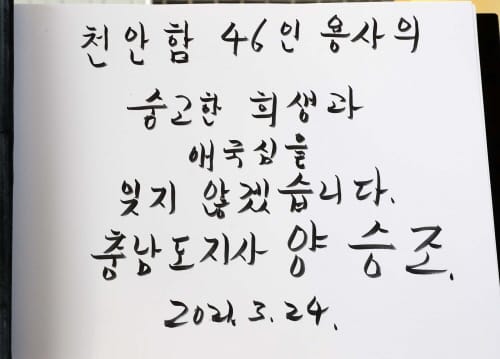 천안함 46인 용사의
숭고한 희생과
애국심을
잊지 않겠습니다.
충남도지사 양승조.
2021. 3. 24.